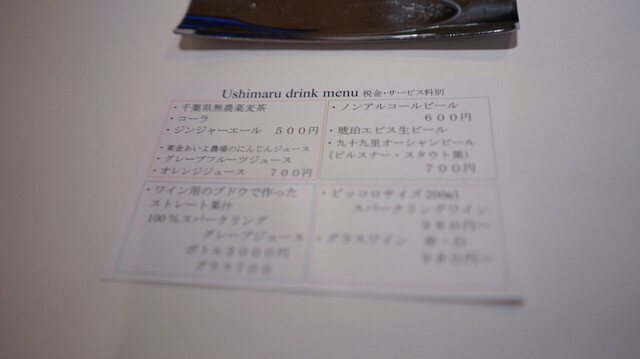 Ushimaru drink menu 税金・サービス料別
・千葉県無農薬麦茶
・コーラ
・ジンジャーエール ５００円
・東金あいよ農場のにんじんジュース
・グレープフルーツジュース
・オレンジジュース ７００円
・ノンアルコールビール
６００円
・琥珀エビス生ビール
・九十九里オーシャンビール
（ピルスナー・スタウト黒）
７００円
・ワイン用のブドウで作った
ストレート果汁
100％スパークリング
グレープジュース
ボトル３０００円
グラス７００
・ピッコロサイズ 200ml
スパークリングワイン
９８０円～
・グラスワイン 赤・白
９８０円～